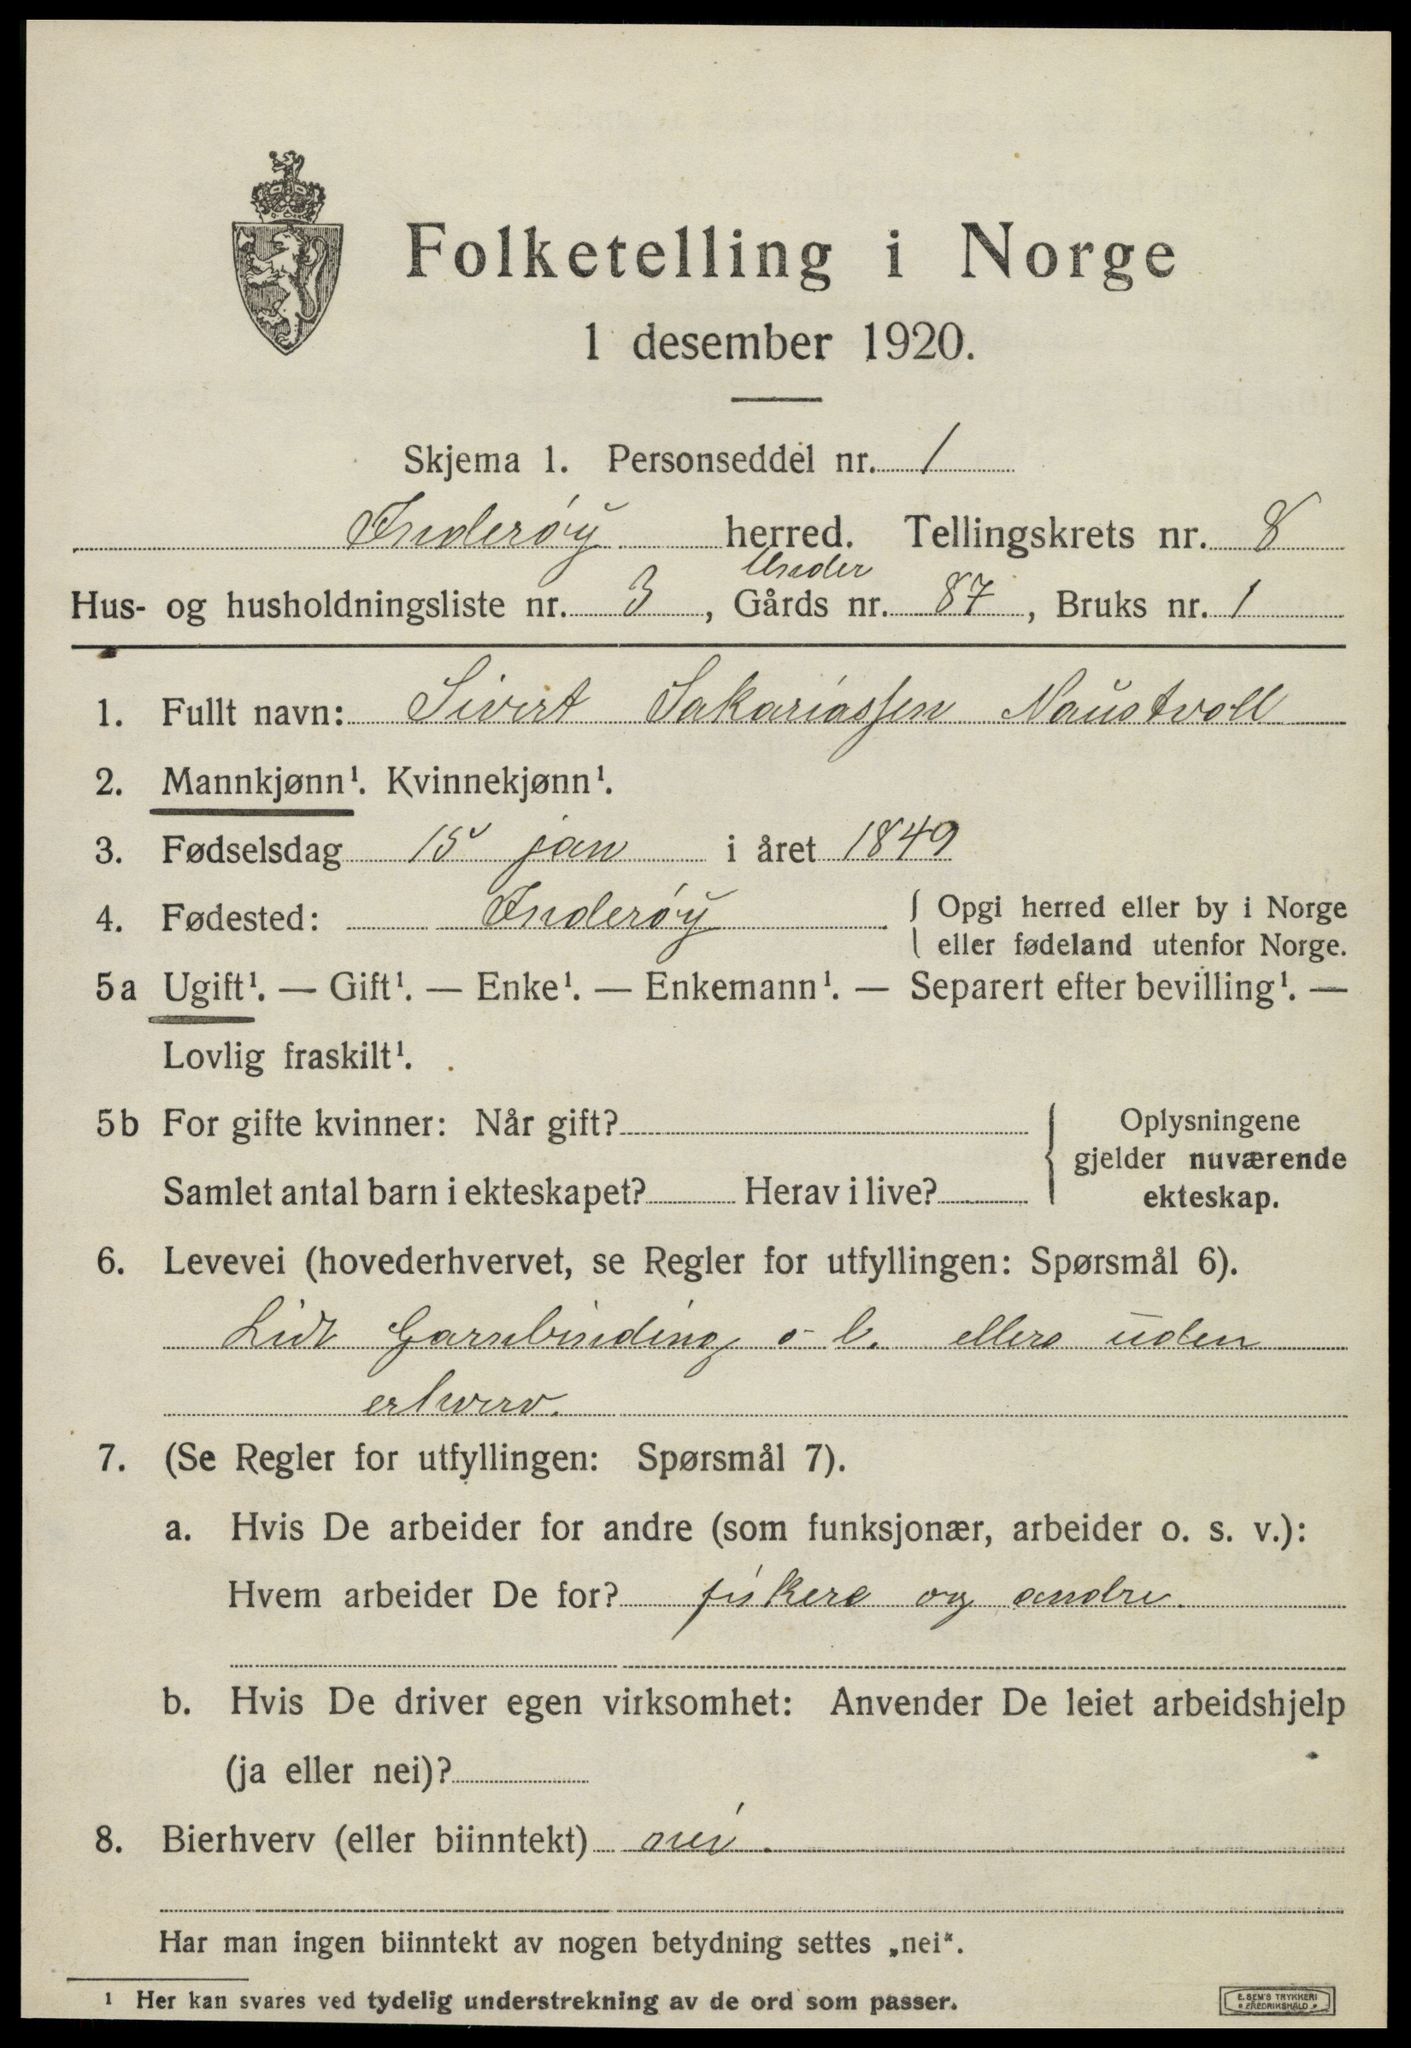 Folketelling i Norge
1 desember 1920.
Skjema 1. Personseddel nr. 1
Inderøy herred. Tellingskrets nr. 8
Under
Hus- og husholdningsliste nr. 3, Gårds nr. 87, Bruks nr. 1
1. Fullt navn: Sivert Sakariassen Naustvoll
2. Mannkjønn¹. Kvinnekjønn¹.
3. Fødselsdag 15 jan i året 1849
4. Fødested: Inderøy { Opgi herred eller by i Norge
eller fødeland utenfor Norge.
5a Ugift¹. — Gift¹. — Enke¹. — Enkemann¹. — Separert efter bevilling¹. —
Lovlig fraskilt¹.
5b For gifte kvinner: Når gift?
Samlet antal barn i ekteskapet? Herav i live?
{ Oplysningene
gjelder nuværende
ekteskap.
6. Levevei (hovederhvervet, se Regler for utfyllingen: Spørsmål 6).
Lidt Garnbinding o l. ellers uden
erhverv.
7. (Se Regler for utfyllingen: Spørsmål 7).
a. Hvis De arbeider for andre (som funksjonær, arbeider o. s. v.):
Hvem arbeider De for? fiskere og andre.
b. Hvis De driver egen virksomhet: Anvender De leiet arbeidshjelp
(ja eller nei)?
8. Bierhverv (eller biinntekt) nei.
Har man ingen biinntekt av nogen betydning settes „nei“.
¹ Her kan svares ved tydelig understrekning av de ord som passer.
E. SEM'S TRYKKERI
FREDRIKSHALD